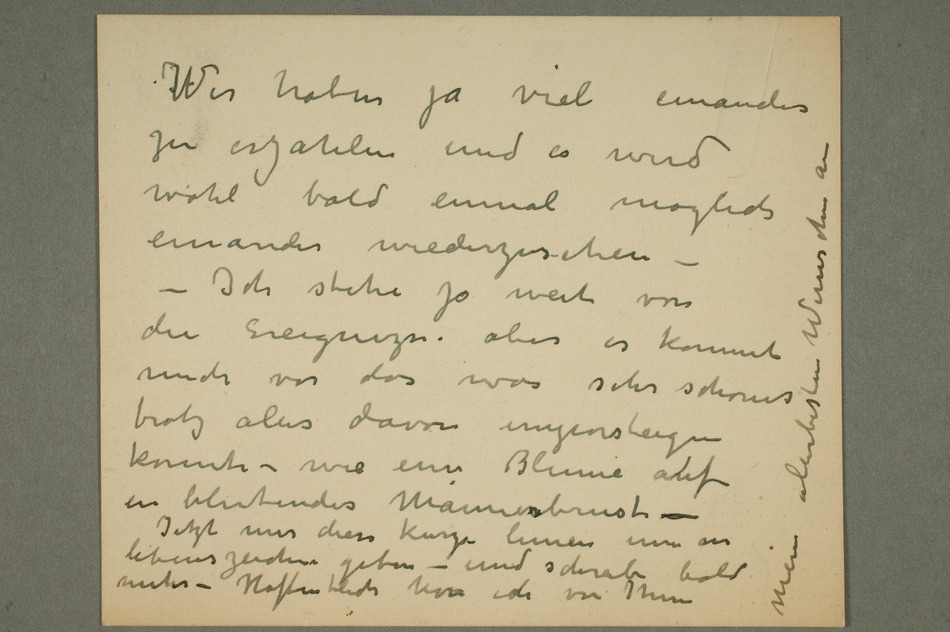 Wir haben ja viel einander
zu erzahlen und es wird
wohl bald einmal moglich
einander wiederzusehen –
– Ich stehe ja weit von
die Ereignize. aber es kommt
mich vor das was sehr schones
trotz alles davon
konnte – wie eine Blume auf
en blutendes Mannerbrust –
Jetzt nur diese kurze linien um an
lebenszeichen geben – und schreibe bald
mehr – Hoffentlich hore ich von Ihnen
Mein allerbesten Wunschen an